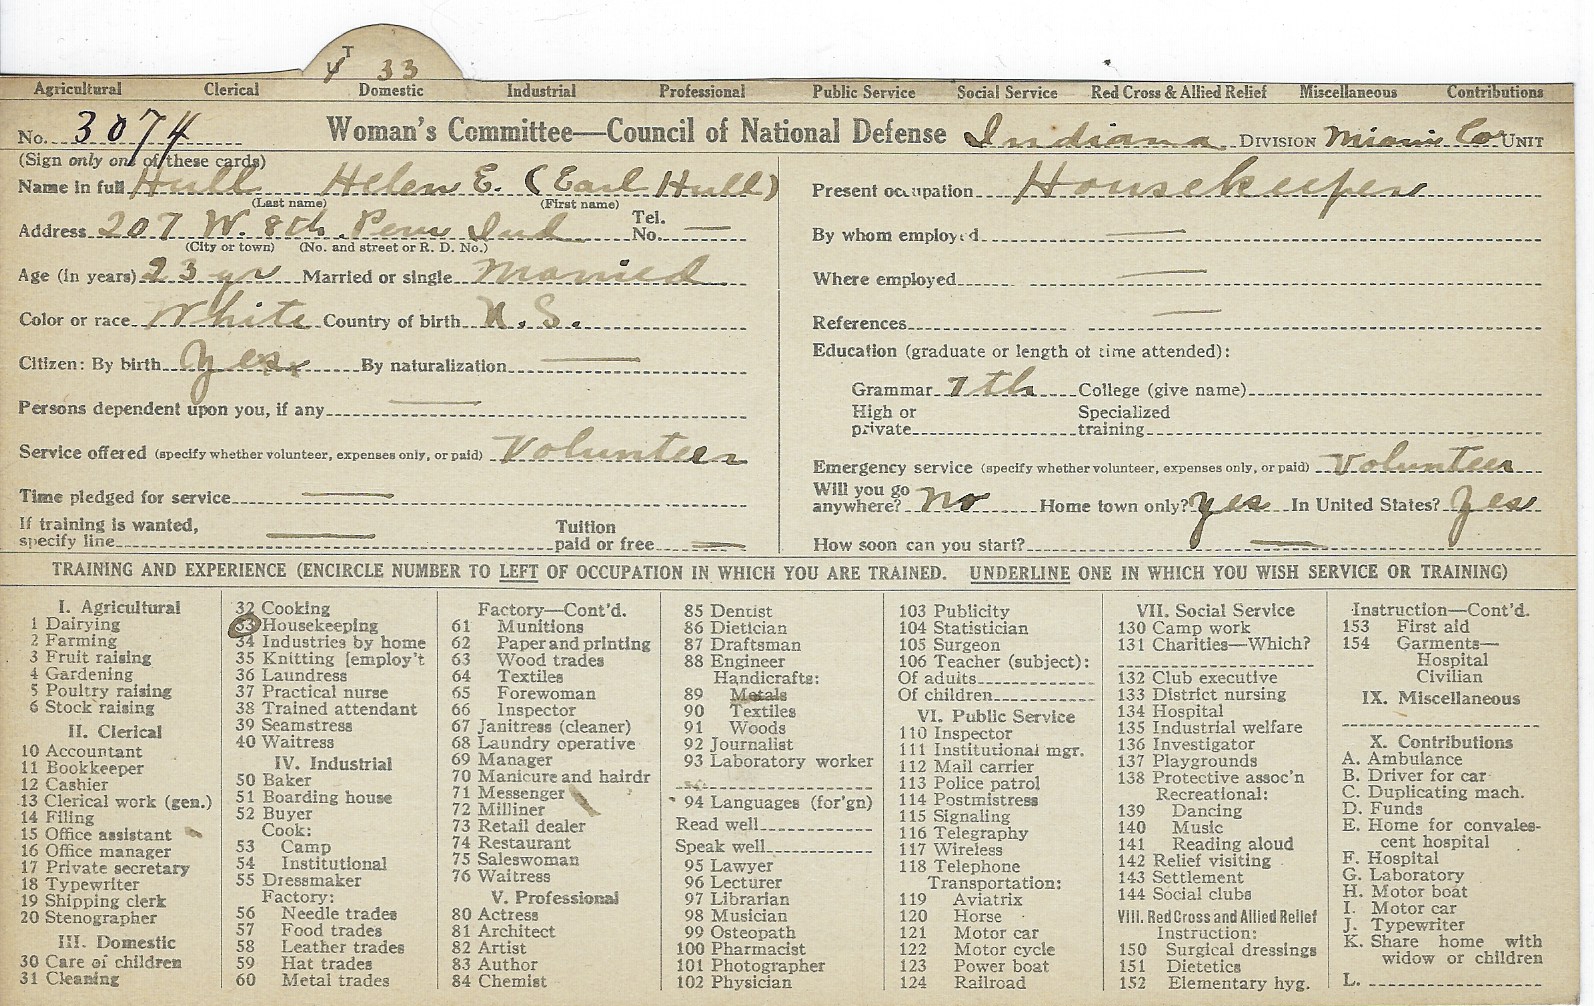 T
4 33
Agricultural Clerical Domestic Industrial Professional Public Service Social Service Red Cross & Allied Relief Miscellaneous Contributions
No. 3074 Woman's Committee—Council of National Defense Indiana DIVISION Miami Co UNIT
(Sign only one of these cards)
Name in full Hull Helen E. (Earl Hull)
(Last name) (First name)
Address 207 W. 8th Peru Ind Tel. No. —
(City or town) (No. and street or R. D. No.)
Age (in years) 23 yr Married or single Married
Color or race White Country of birth U.S.
Citizen: By birth Yes By naturalization —
Persons dependent upon you, if any —
Service offered (specify whether volunteer, expenses only, or paid) Volunteer
Time pledged for service —
If training is wanted,
specify line — Tuition paid or free —
Present occupation Housekeeper
By whom employed —
Where employed —
References —
Education (graduate or length of time attended):
Grammar 7th College (give name)
High or private Specialized training
Emergency service (specify whether volunteer, expenses only, or paid) Volunteer
Will you go anywhere? no Home town only? yes In United States? Yes
How soon can you start? —
TRAINING AND EXPERIENCE (ENCIRCLE NUMBER TO LEFT OF OCCUPATION IN WHICH YOU ARE TRAINED. UNDERLINE ONE IN WHICH YOU WISH SERVICE OR TRAINING)
I. Agricultural
1 Dairying
2 Farming
3 Fruit raising
4 Gardening
5 Poultry raising
6 Stock raising
II. Clerical
10 Accountant
11 Bookkeeper
12 Cashier
13 Clerical work (gen.)
14 Filing
15 Office assistant
16 Office manager
17 Private secretary
18 Typewriter
19 Shipping clerk
20 Stenographer
III. Domestic
30 Care of children
31 Cleaning
32 Cooking
33 Housekeeping
34 Industries by home
35 Knitting [employ't
36 Laundress
37 Practical nurse
38 Trained attendant
39 Seamstress
40 Waitress
IV. Industrial
50 Baker
51 Boarding house
52 Buyer
Cook:
53 Camp
54 Institutional
55 Dressmaker
Factory:
56 Needle trades
57 Food trades
58 Leather trades
59 Hat trades
60 Metal trades
Factory—Cont'd.
61 Munitions
62 Paper and printing
63 Wood trades
64 Textiles
65 Forewoman
66 Inspector
67 Janitress (cleaner)
68 Laundry operative
69 Manager
70 Manicure and hairdr
71 Messenger
72 Milliner
73 Retail dealer
74 Restaurant
75 Saleswoman
76 Waitress
V. Professional
80 Actress
81 Architect
82 Artist
83 Author
84 Chemist
85 Dentist
86 Dietician
87 Draftsman
88 Engineer
Handicrafts:
89 Metals
90 Textiles
91 Woods
92 Journalist
93 Laboratory worker
94 Languages (for'gn)
Read well
Speak well
95 Lawyer
96 Lecturer
97 Librarian
98 Musician
99 Osteopath
100 Pharmacist
101 Photographer
102 Physician
103 Publicity
104 Statistician
105 Surgeon
106 Teacher (subject):
Of adults
Of children
VI. Public Service
110 Inspector
111 Institutional mgr.
112 Mail carrier
113 Police patrol
114 Postmistress
115 Signaling
116 Telegraphy
117 Wireless
118 Telephone
Transportation:
119 Aviatrix
120 Horse
121 Motor car
122 Motor cycle
123 Power boat
124 Railroad
VII. Social Service
130 Camp work
131 Charities—Which?
132 Club executive
133 District nursing
134 Hospital
135 Industrial welfare
136 Investigator
137 Playgrounds
138 Protective assoc'n
Recreational:
139 Dancing
140 Music
141 Reading aloud
142 Relief visiting
143 Settlement
144 Social clubs
VIII. Red Cross and Allied Relief
Instruction:
150 Surgical dressings
151 Dietetics
152 Elementary hyg.
Instruction—Cont'd.
153 First aid
154 Garments—
Hospital
Civilian
IX. Miscellaneous
X. Contributions
A. Ambulance
B. Driver for car
C. Duplicating mach.
D. Funds
E. Home for convales-
cent hospital
F. Hospital
G. Laboratory
H. Motor boat
I. Motor car
J. Typewriter
K. Share home with
widow or children
L.